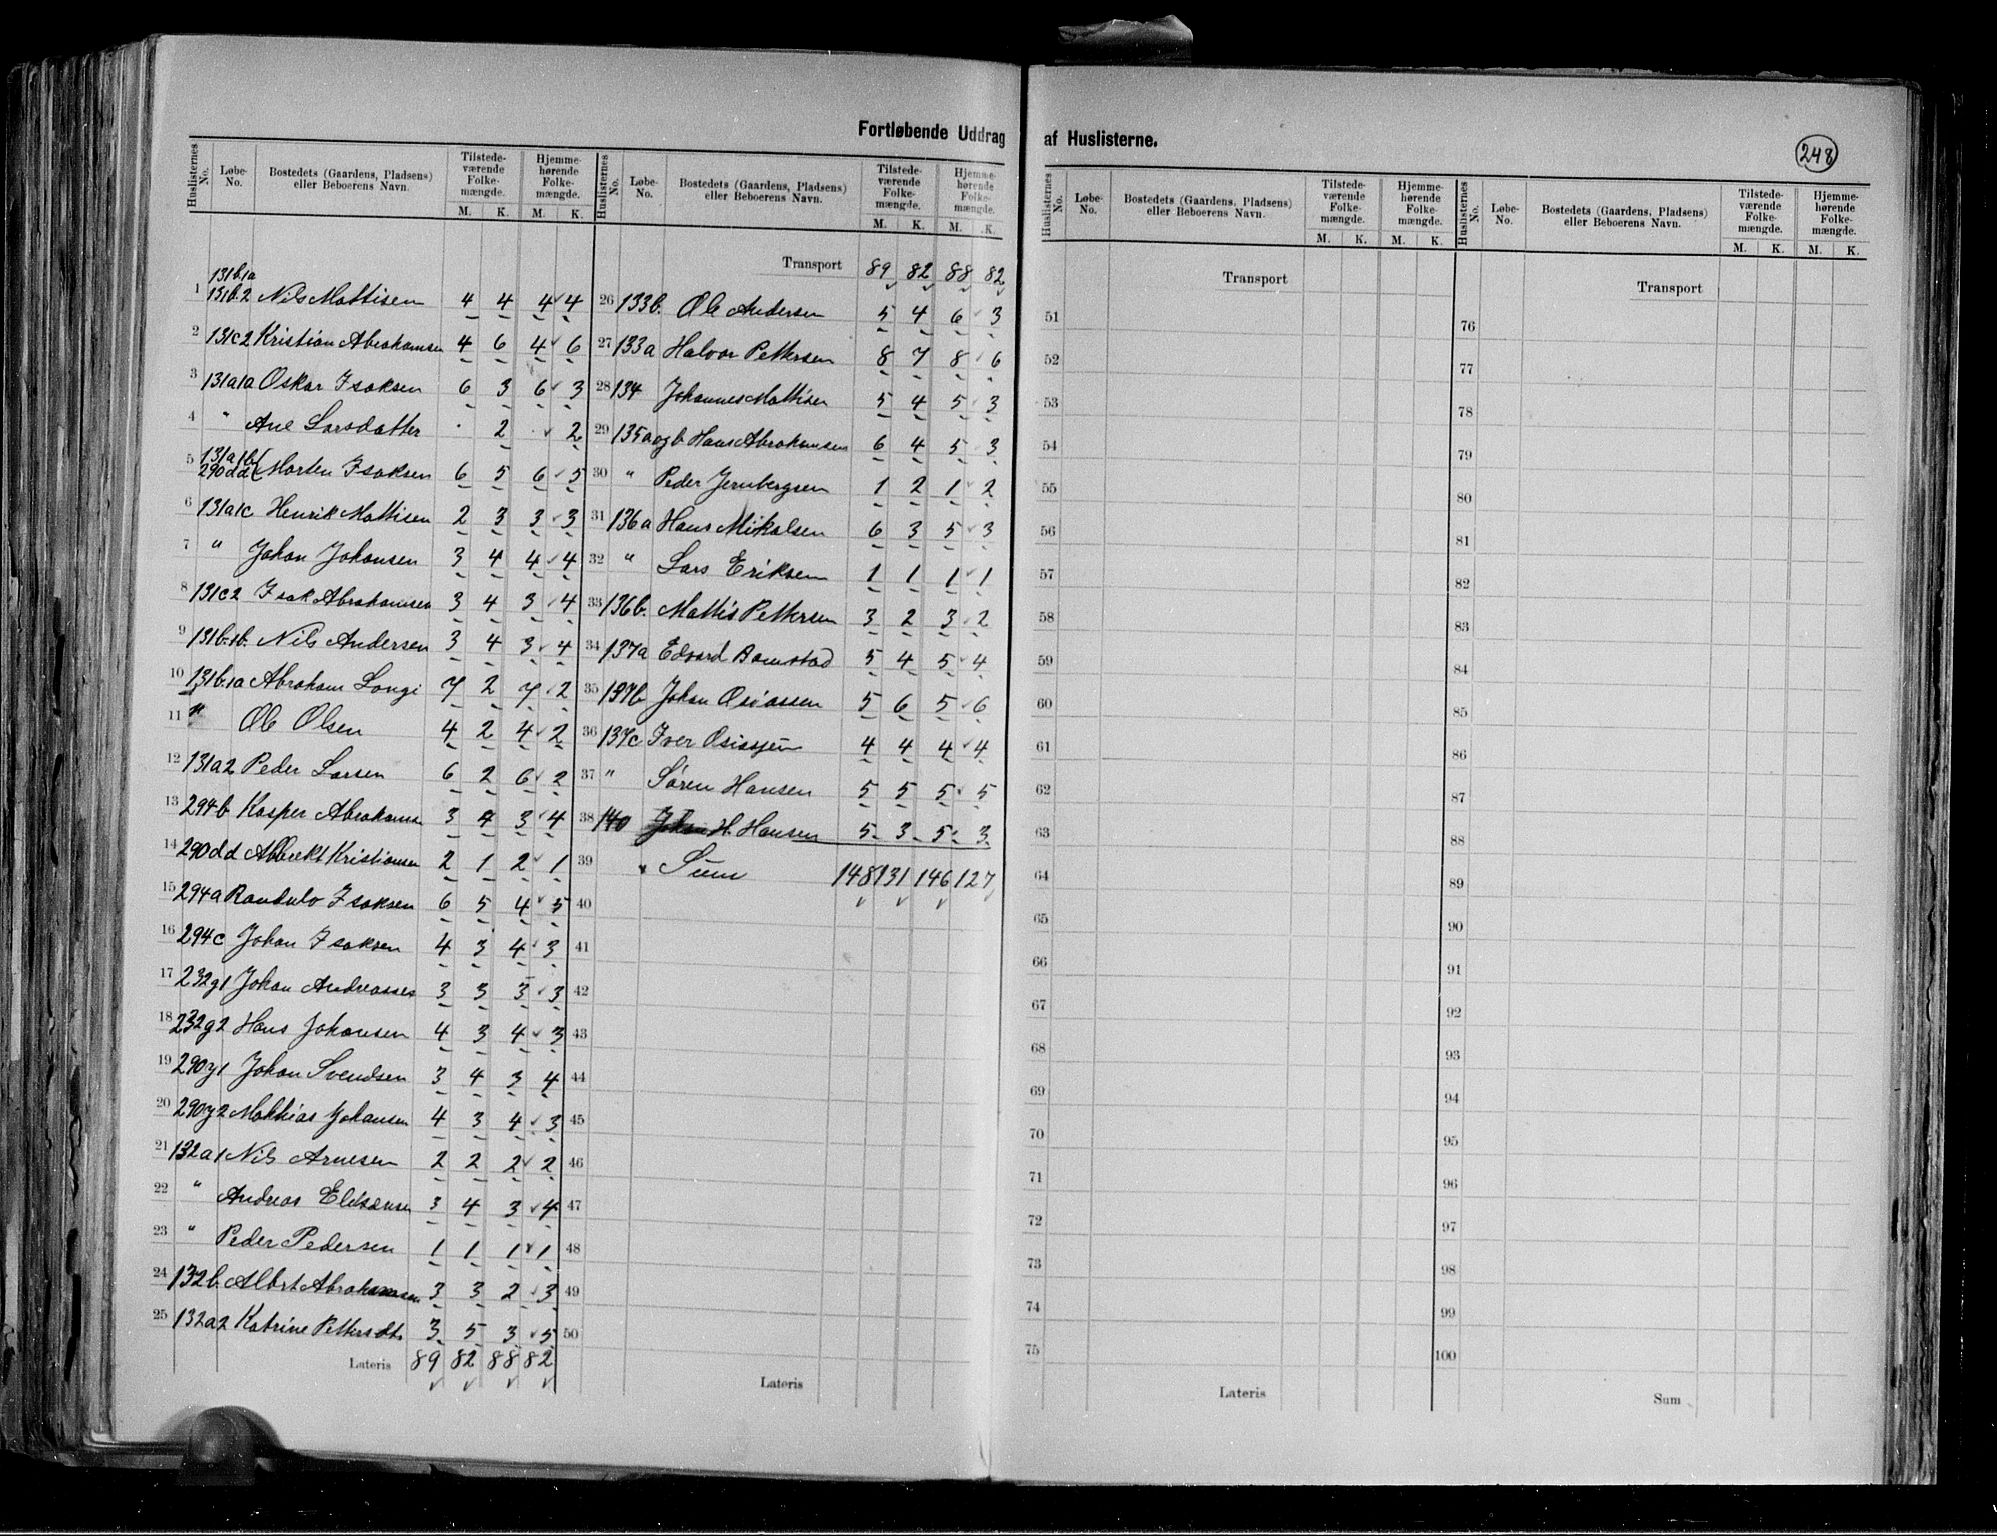 Fortløbende Uddrag af Huslisterne.
248
Huslisternes No. Løbe-No. Bostedets (Gaardens, Pladsens) eller Beboerens Navn. Tilstedeværende Folkemængde. M. K. Hjemmehørende Folkemængde. M. K.
1 131b.1a 131b.2 Nils Mattisen 4 4 4 4
2 131c2 Kristian Abrahamsen 4 6 4 6
3 131a1a Oskar Isaksen 6 3 6 3
4 " Ane Larsdatter . 2 . 2
5 131a1b 290dd Morten Isaksen 6 5 6 5
6 131a1c Henrik Mattisen 2 3 3 3
7 " Johan Johansen 3 4 4 4
8 131c2 Isak Abrahamsen 3 4 3 4
9 131b.1b. Nils Andersen 3 4 3 4
10 131b.1a Abraham Longi 7 2 7 2
11 " Ole Olsen 4 2 4 2
12 131a2 Peder Larsen 6 2 6 2
13 294b Kasper Abrahams 3 4 3 4
14 290dd Albrekt Kristiansen 2 1 2 1
15 294a Randulv Isaksen 6 5 4 5
16 294c Johan Isaksen 4 3 4 3
17 232g1 Johan Andreasses 3 3 3 3
18 232g2 Hans Johansen 4 3 4 3
19 290y1 Johan Svendsen 3 4 3 4
20 290y2 Mathias Johansen 4 3 4 3
21 132a1 Nils Arnesen 2 2 2 2
22 " Andreas 3 4 3 4
23 " Peder Pedersen 1 1 1 1
24 132b. Albrt Abrahamsen 3 3 2 3
25 132a2 Katrine Pettersdt. 3 5 3 5
Lateris 89 82 88 82
Huslisternes No. Løbe-No. Bostedets (Gaardens, Pladsens) eller Beboerens Navn. Tilstedeværende Folkemængde. M. K. Hjemmehørende Folkemængde. M. K.
Transport 89 82 88 82
26 133b. Ole Andersen 5 4 6 3
27 133a Halvor Pettersen 8 7 8 6
28 134 Johannes Mattisen 5 4 5 3
29 135a og b Hans Abrahamsen 6 4 5 3
30 " Peder Jernbergsen 1 2 1 2
31 136a Hans Mikalsen 6 3 5 3
32 " Lars Eriksen 1 1 1 1
33 136b. Mattis Pettersen 3 2 3 2
34 137a Edvard Bomstad 5 4 5 4
35 137b Johan Osiassen 5 6 5 6
36 137c Iver 4 4 4 4
37 " Søren Hansen 5 5 5 5
38 140 Johan H. Hansen 5 3 5 3
39 Sum 148 131 146 127
40
41
42
43
44
45
46
47
48
49
50
Lateris
Huslisternes No. Løbe-No. Bostedets (Gaardens, Pladsens) eller Beboerens Navn. Tilstedeværende Folkemængde. M. K. Hjemmehørende Folkemængde. M. K.
Transport
51
52
53
54
55
56
57
58
59
60
61
62
63
64
65
66
67
68
69
70
71
72
73
74
75
Lateris
Huslisternes No. Løbe-No. Bostedets (Gaardens, Pladsens) eller Beboerens Navn. Tilstedeværende Folkemængde. M. K. Hjemmehørende Folkemængde. M. K.
Transport
76
77
78
79
80
81
82
83
84
85
86
87
88
89
90
91
92
93
94
95
96
97
98
99
100
Sum